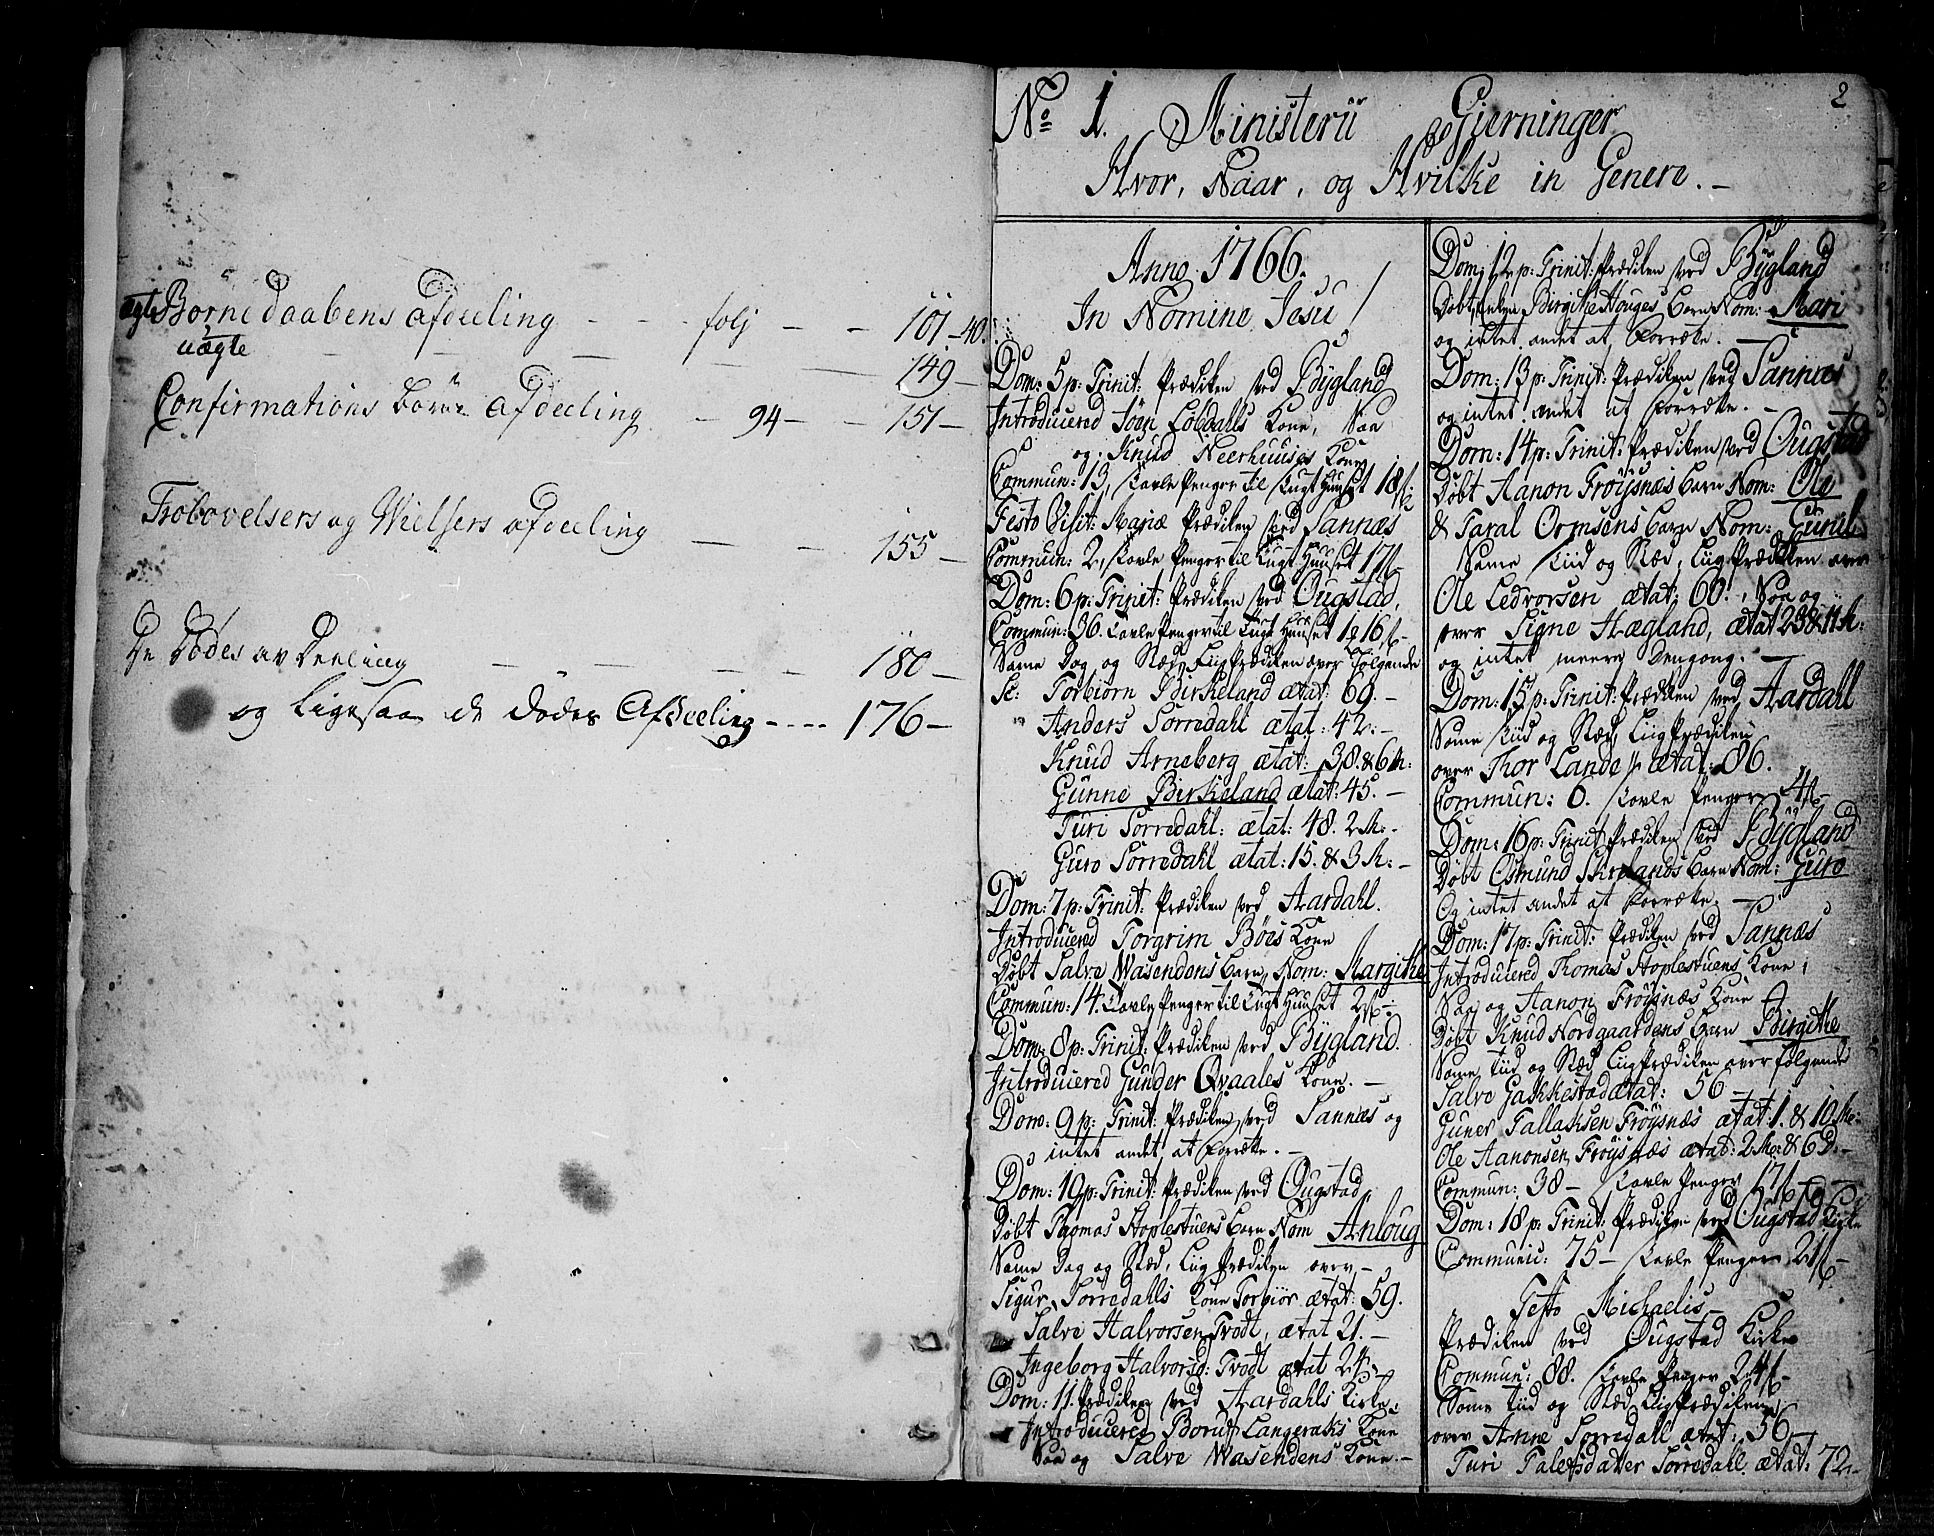 ægte Børne daabens afdeeling - - - folj - - 101-40.
uægte - - - - 149-
Confirmations Børne afdeeling - 94 - - 151-
Trolovelsers og Vielsers afdeeling - - 155-
De Dødes av Deeling - - - - 180-
og Ligesaa de Dødes Afdeeling - - - - 176-
2
No 1. Ministerii Gierninger
Hvor, Naar, og Hvilke in Genere. -
Anno 1766.
In Nomine Jesu /
Dom: 5 p: Trinit: Prædiken ved Bÿgland
Introducered Kone, Saa
og Knud Neerhuuses Kone
Commun: 13, Tavle Penger til Tugt Huuset 18 s:
Festo Visit: Mariæ Prædiken ved Sannæs
Commun: 2, Tavle Penger til Tugt Huuset 17 s-
Dom: 6 p: Trinit: Prædiken ved Ougstad,
Commun: 36. Tavle Penger til Tugt Huuset 16 s-
Same Dag og Stæd, Liig Prædiken over følgende
Sc: Torbiørn Birkeland ætat: 69. -
Anders Sorredahl ætat: 42. -
Knud Arneberg ætat: 38. & 6 M:
Gunne Birkeland ætat: 45. -
Turi Sorredahl: ætat: 48. 2 M: -
Guro Sorredahl ætat: 15. & 3 M: -
Dom: 7 p: Trinit: Prædiken ved Aardahl.
Introducered Torgrim Bøes Kone
Døbt Salve Wasendens Barn, Nom: Margithe
Commun: 14. Tavle Penger til Tugt Huuset 2 s -
Dom: 8 p: Trinit: Prædiken ved Bÿgland.
Introducered Gunder Qvaales Kone. -
Dom: 9 p: Trinit: Prædiken ved Sannæs og
intet andet at forrette. -
Dom: 10 p: Trinit: Prædiken ved Ougstad
Døbt Thomas Stoplestuens Barn Nom Anloug
Same Dag og Stæd, Liig Prædiken over -
Sigur Sorredahls Kone Torbiør ætat: 59.
Salve Halvorsen Tvedt, ætat 21. -
Ingeborg Halvorsd: Tvedt ætat 24 -
Dom: 11. Prædiken ved Aardahls Kirke,
Introducered Langeraks Kone
Saa og Salve Wasendens Kone. -
Dom: 12 p: Trinit: Prædiken ved Bÿgland
Døbt Birgithe Houges Barn Nom: Mari
og intet andet at forrette. -
Dom: 13 p: Trinit: Prædiken ved Sannæs
og intet andet at forrette. -
Dom: 14 p: Trinit: Prædiken ved Ougstad
Døbt Aanon Frøysnæs Barn Nom: Ole
& Taral Ormsens Barn Nom: Gunil
Same Tiid og Stæd, Liig Prædiken over
Ole Ledvorsen ætat: 60. Saa og
over Signe Hægland, ætat 23 & 11 M:
og intet meere dengang. -
Dom: 15 p: Trinit: Prædiken ved Aardahl
Same Tiid og Stæd Liig Prædiken
over Thor Lande ætat: 86.
Commun: 6. Tavle Penger 4 s -
Dom: 16 p: Trinit: Prædiken ved Bÿgland
Døbt Osmund Barn Nom: Guro
Og intet andet at forrette. -
Dom: 17 p: Trinit: Prædiken ved Sannæs
Introducered Thomas Stoplestuens Kone,
Saa og Aanon Frøysnæs Kone
Døbt Knud Nordgaardens Barn Birgithe
Same Tiid og Stæd Liig Prædiken over følgende
Salve ætat: 56 -
Guner Tallaksen Frøysnæs ætat: 1. & 10 M:
Ole Aanonsen Frøysnæs ætat: 2 M: & 6 D. -
Commun: 38 - Tavle Penger 17 s -
Dom: 18 p: Trinit: Prædiken ved Ougstad Kirke
Communic: 75 - Tavle Penger 21 s -
Festo Michaelis
Prædiken ved Ougstad Kirke
Commun: 88. Tavle Penger 24 s -
Same Tiid og Stæd Liig Prædiken
over Anne Sorredahl ætat: 56 -
Turi Talefsdatter Sorredahl ætat: 72 -